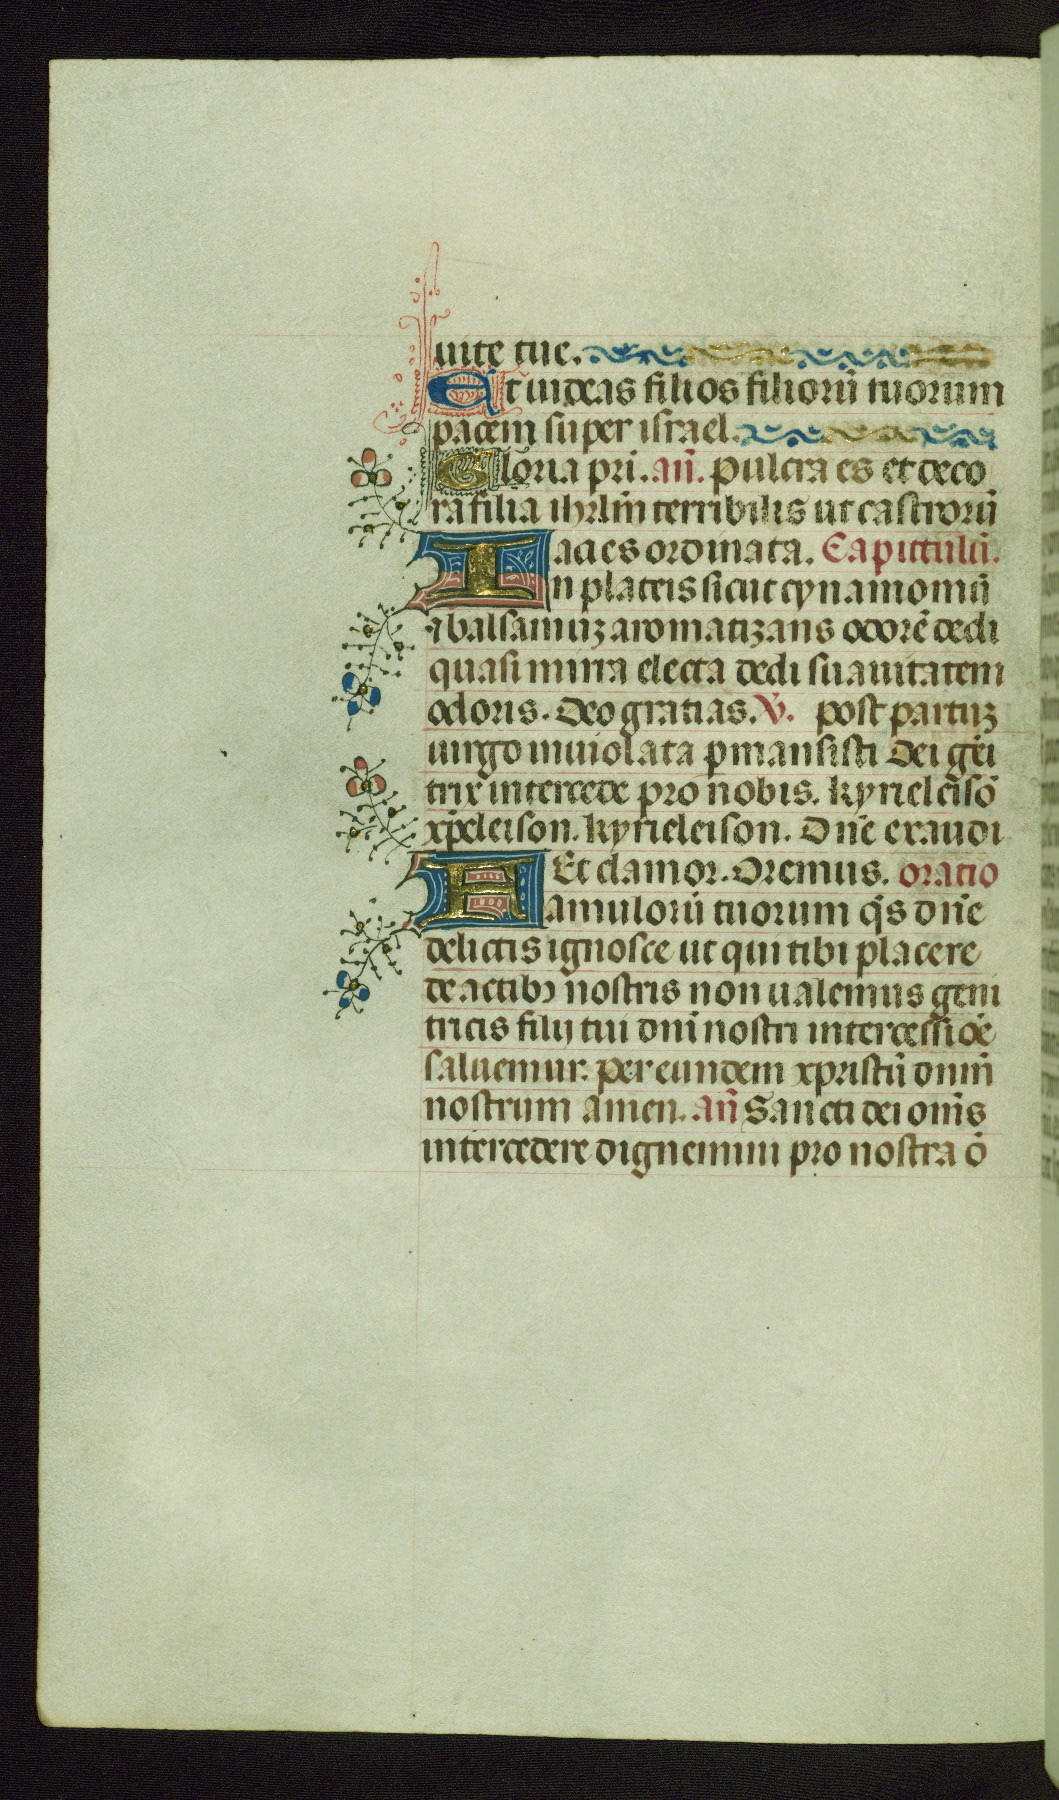 uite tue.
Et uideas filios filioru̅ tuorum
pacem super israel.
Gloria pri. an̅. pulcra es et deco
ra filia ihrl̅m terribilis ut castroru̅
acies ordinata. Capittulu̅.
In plateis sicut cynamomu̅
⁊ balsamuꝫ aromatizans odore̅ dedi
quasi mirra electa dedi suauitatem
odoris. Deo gratias. V̅. post partuꝫ
uirgo inuiolata pmansisti Dei ge̅i
trix intercede pro nobis. kyrieleiso̅
xp̅eleison. kyrieleison. Dn̅e exaudi
Et clamor. Oremus. oratio
Famuloru̅ tuorum q̅s dn̅e
delictis ignosce ut qui tibi placere
de actibꝫ nostris non ualemus geni
tricis filij tui dn̅i nostri intercessio̅e
saluemur. per eundem xpristu̅ dnm̅
nostrum amen. an̅ Sancti dei om̅s
intercedere dignemini pro nostra o̅